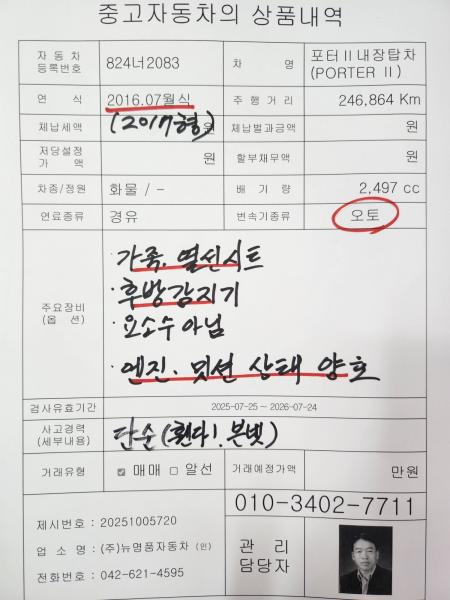 중고자동차의 상품내역
자 동 차 등록번호 824너2083 차 명 포터Ⅱ내장탑차 (PORTER Ⅱ)
연 식 2016.07월식 주 행 거 리 246,864 Km
체납세액 (2017형) 원 체납벌과금액 원
저당설정 가 액 원 할부채무액 원
차종/정원 화물 / - 배 기 량 2,497 cc
연료종류 경유 변속기종류 오토
주요장비 (옵 션)
· 가죽. 열선시트
· 후방감지기
· 요소수 아님
· 엔진. 밋션 상태 양호
검사유효기간 2025-07-25 ~ 2026-07-24
사고경력 (세부내용) 단순(휀다!. 본넷)
거래유형 ☑ 매매 □ 알선 거래예정가액 만원
010-3402-7711
제시번호 : 20251005720
업 소 명 : (주)뉴명품자동차 (인)
전화번호 : 042-621-4595
관 리
담당자